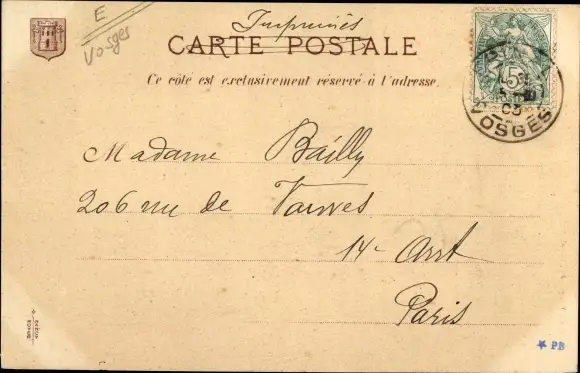 E
Vosges
Imprimés
CARTE POSTALE
Ce côté est exclusivement réservé à l'adresse.
5
POSTES
VOSGES
Madame Bailly
206 rue de Vanves
14e Arrt
Paris
* PB